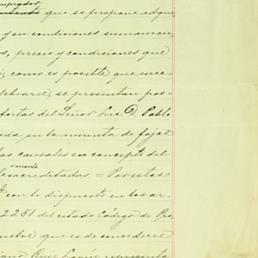 que se propone adqui
y en condiciones
os, precio y condiciones que
, como es posible, que suce
celebrarse, se presentan pos
fertas del Señor Lic. D. Pablo
ada en la minuta de fojas
las causales en concepto del
mente
acreditadas = Por estas
con lo dispuesto en los ar
2251 del citado Código de Pro
que es de concederse